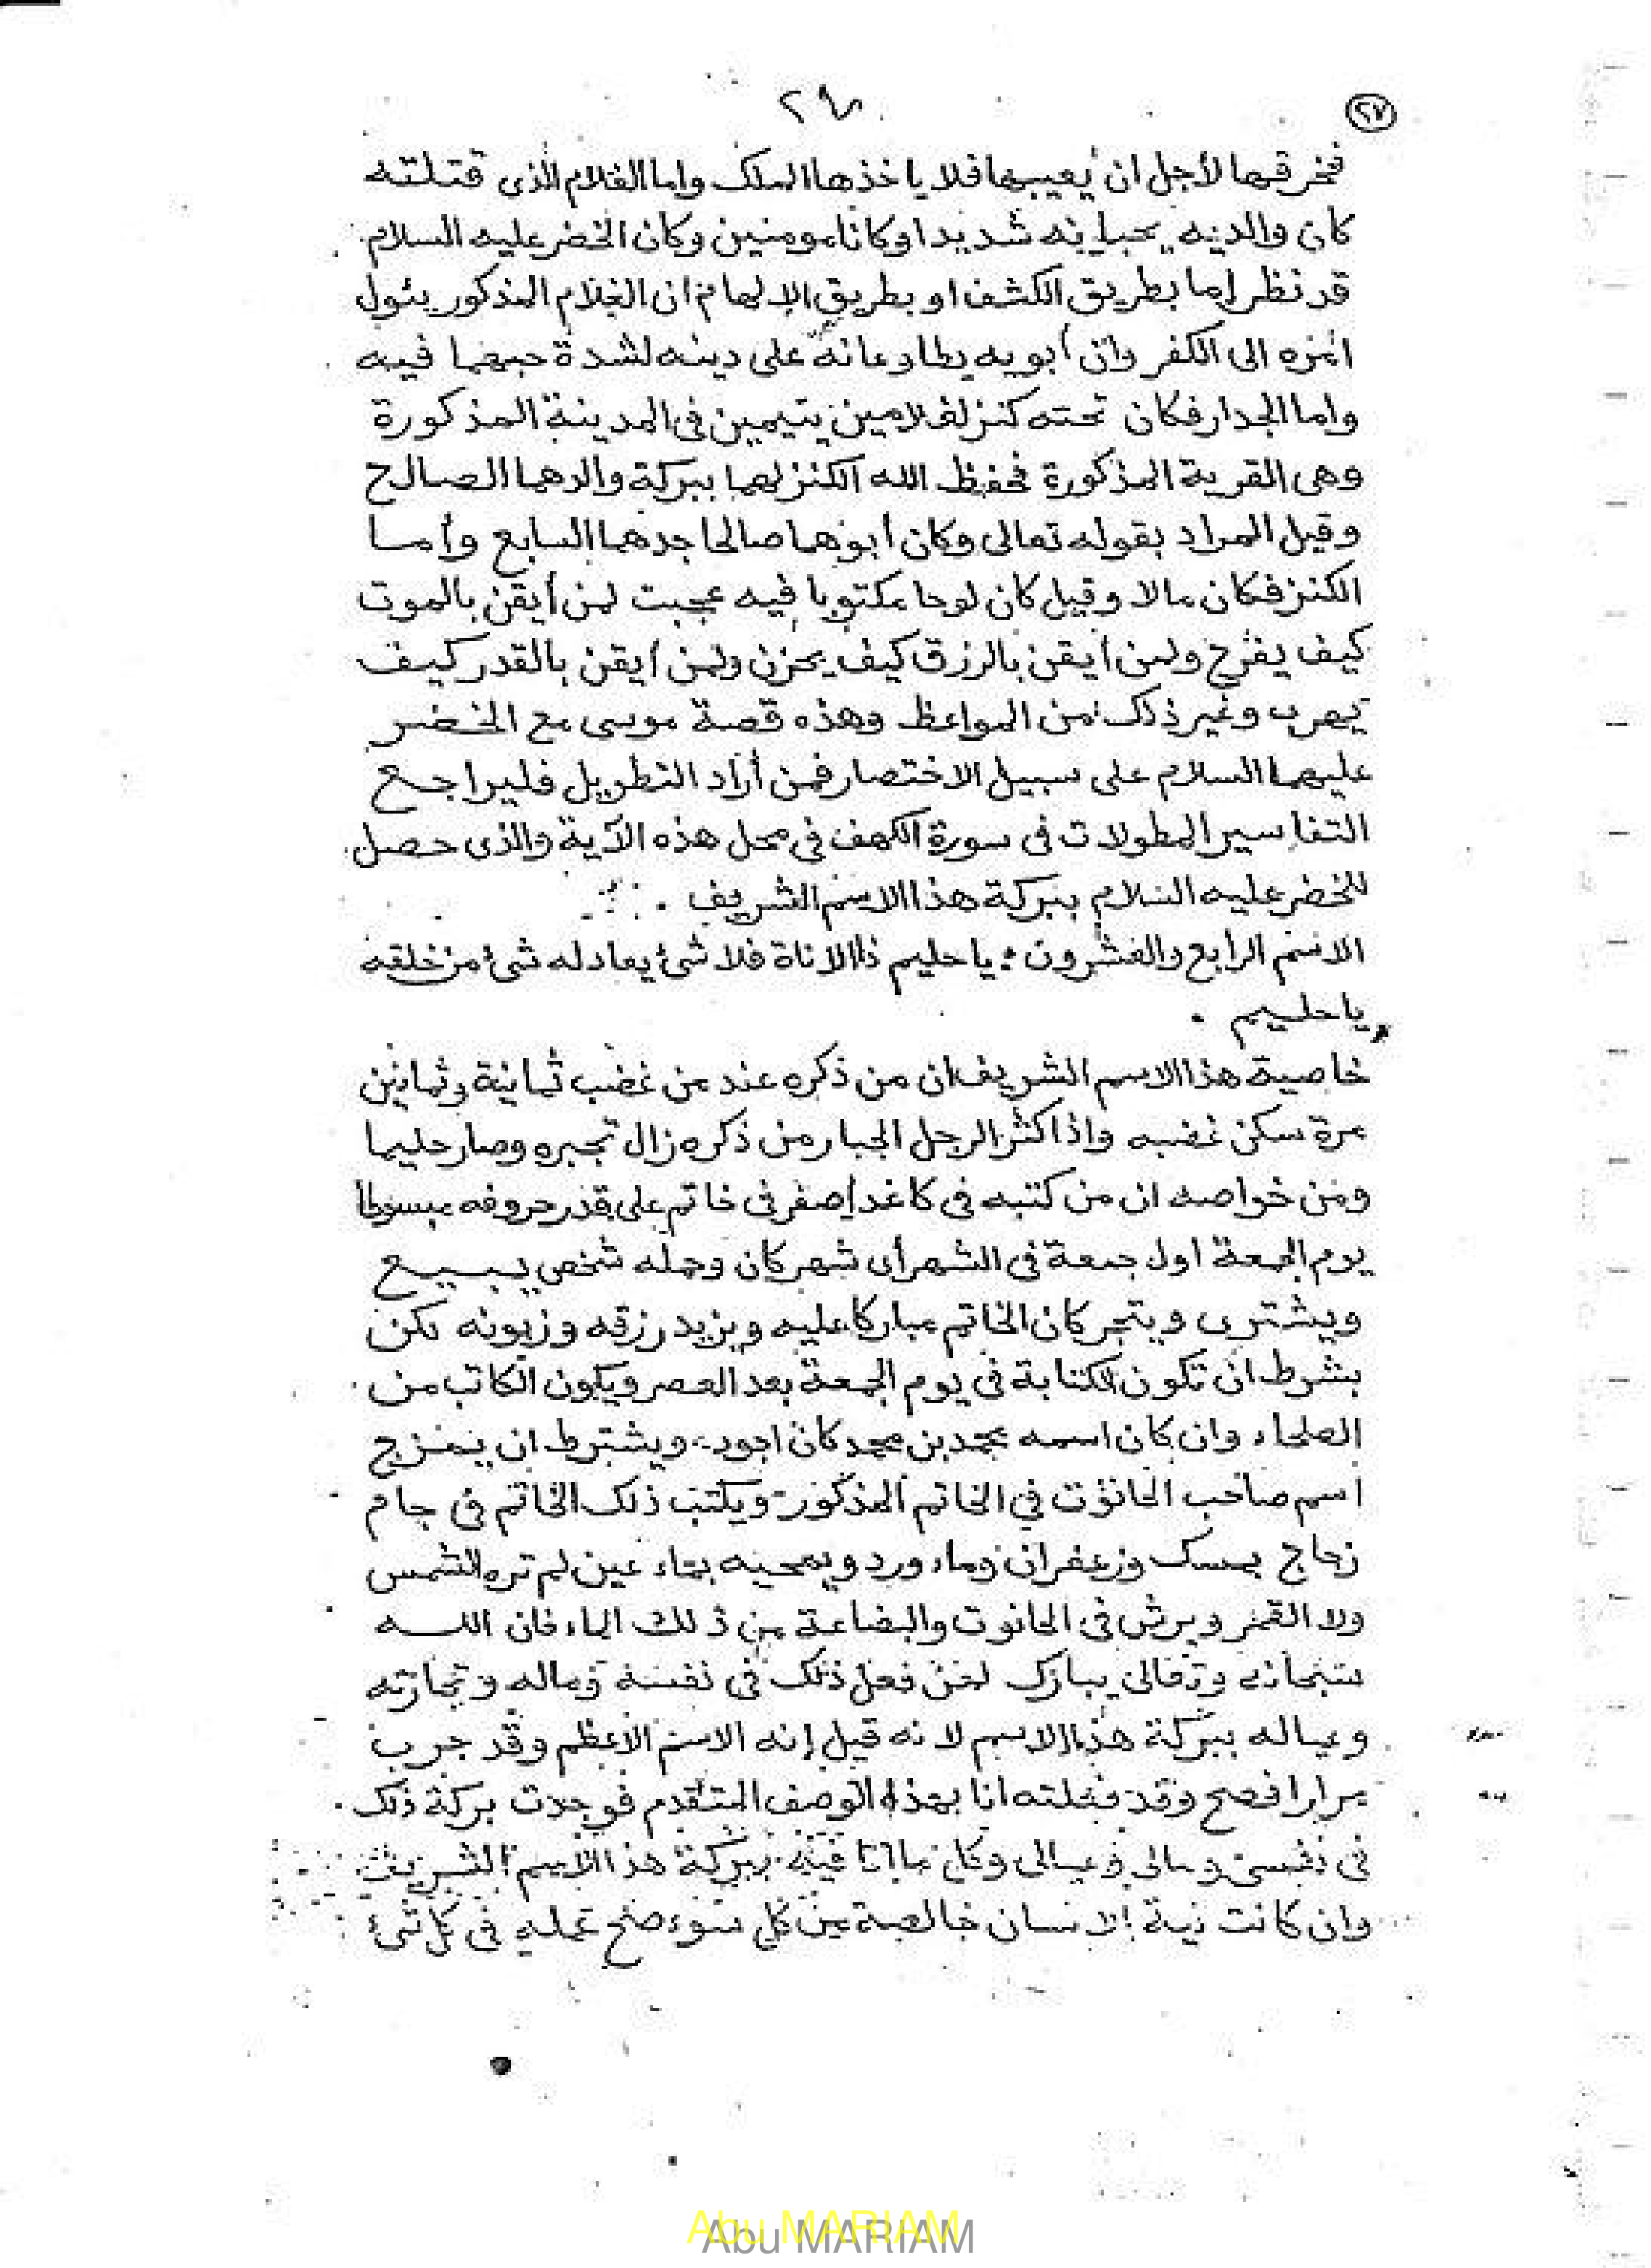 ٢٧
فخرقها لأجل ان يعيبها فلا ياخذها الملك واما الغلام الذى قتلته
كان والديه يحبانه شديدا وكانا مومنين وكان الخضر عليه السلام
قد نظر إما بطريق الكشف او بطريق الالهام ان الغلام المذكور يئول
امره الى الكفر وان أبويه يطاوعانه على دينه لشدة حبهما فيه
واما الجدار فكان تحته كنز لغلامين يتيمين فى المدينة المذكورة
وهى القرية المذكورة فحفظ الله الكنز لهما ببركة والدهما الصالح
وقيل المراد بقوله تعالى وكان أبوهما صالحا جدهما السابع وأما
الكنز فكان مالا وقيل كان لوحا مكتوبا فيه عجبت لمن أيقن بالموت
كيف يفرح ولمن أيقن بالرزق كيف يحزن ولمن أيقن بالقدر كيف
يهرب وغير ذلك من المواعظ وهذه قصة موسى مع الخضر
عليهما السلام على سبيل الاختصار فمن أراد التطويل فليراجع
التفاسير المطولات فى سورة الكهف فى محل هذه الآية والذى حصل
للخضر عليه السلام ببركة هذا الاسم الشريف .
الاسم الرابع والعشرون : يا حليم ذا الاناة فلا شئ يعادله شئ من خلقه
يا حليم .
خاصية هذا الاسم الشريف ان من ذكره عند من غضب ثمانية وثمانين
مرة سكن غضبه واذا كثر الرجل الجبار من ذكره زال تجبره وصار حليما
ومن خواصه ان من كتبه فى كاغد إصفر فى خاتم على قدر حروفه مبسوطا
يوم الجمعة اول جمعة فى الشهر أى شهر كان وحمله شخص يبيع
ويشترى ويتجر كان الخاتم مباركا عليه ويزيد رزقه وزبونه لكن
بشرط ان تكون الكتابة فى يوم الجمعة بعد العصر ويكون الكاتب من
الصلحاء وان كان اسمه محمد بن محمد كان اجود ويشترط ان يمزج
اسم صاحب الحانوت في الخاتم المذكور ويكتب ذلك الخاتم فى جام
زجاج بمسك وزعفران وماء ورد ويمحيه بماء عين لم تره الشمس
ولا القمر ويرش فى الحانوت والبضاعة من ذلك الماء فان الله
سبحانه وتعالى يبارك لمن فعل ذلك فى نفسه وماله وتجارته
وعياله ببركة هذا الاسم لانه قيل إنه الاسم الأعظم وقد جرب
مرارا فصح وقد فعلته انا بهذا الوصف المتقدم فوجدت بركة ذلك
فى نفسى ومالى وعيالى وكل ما انا فيه ببركة هذا الاسم الشريف
وان كانت نية الانسان خالصة من كل سوء صح عمله فى كل شئ
Abu MARIAM
Abu MARIAM